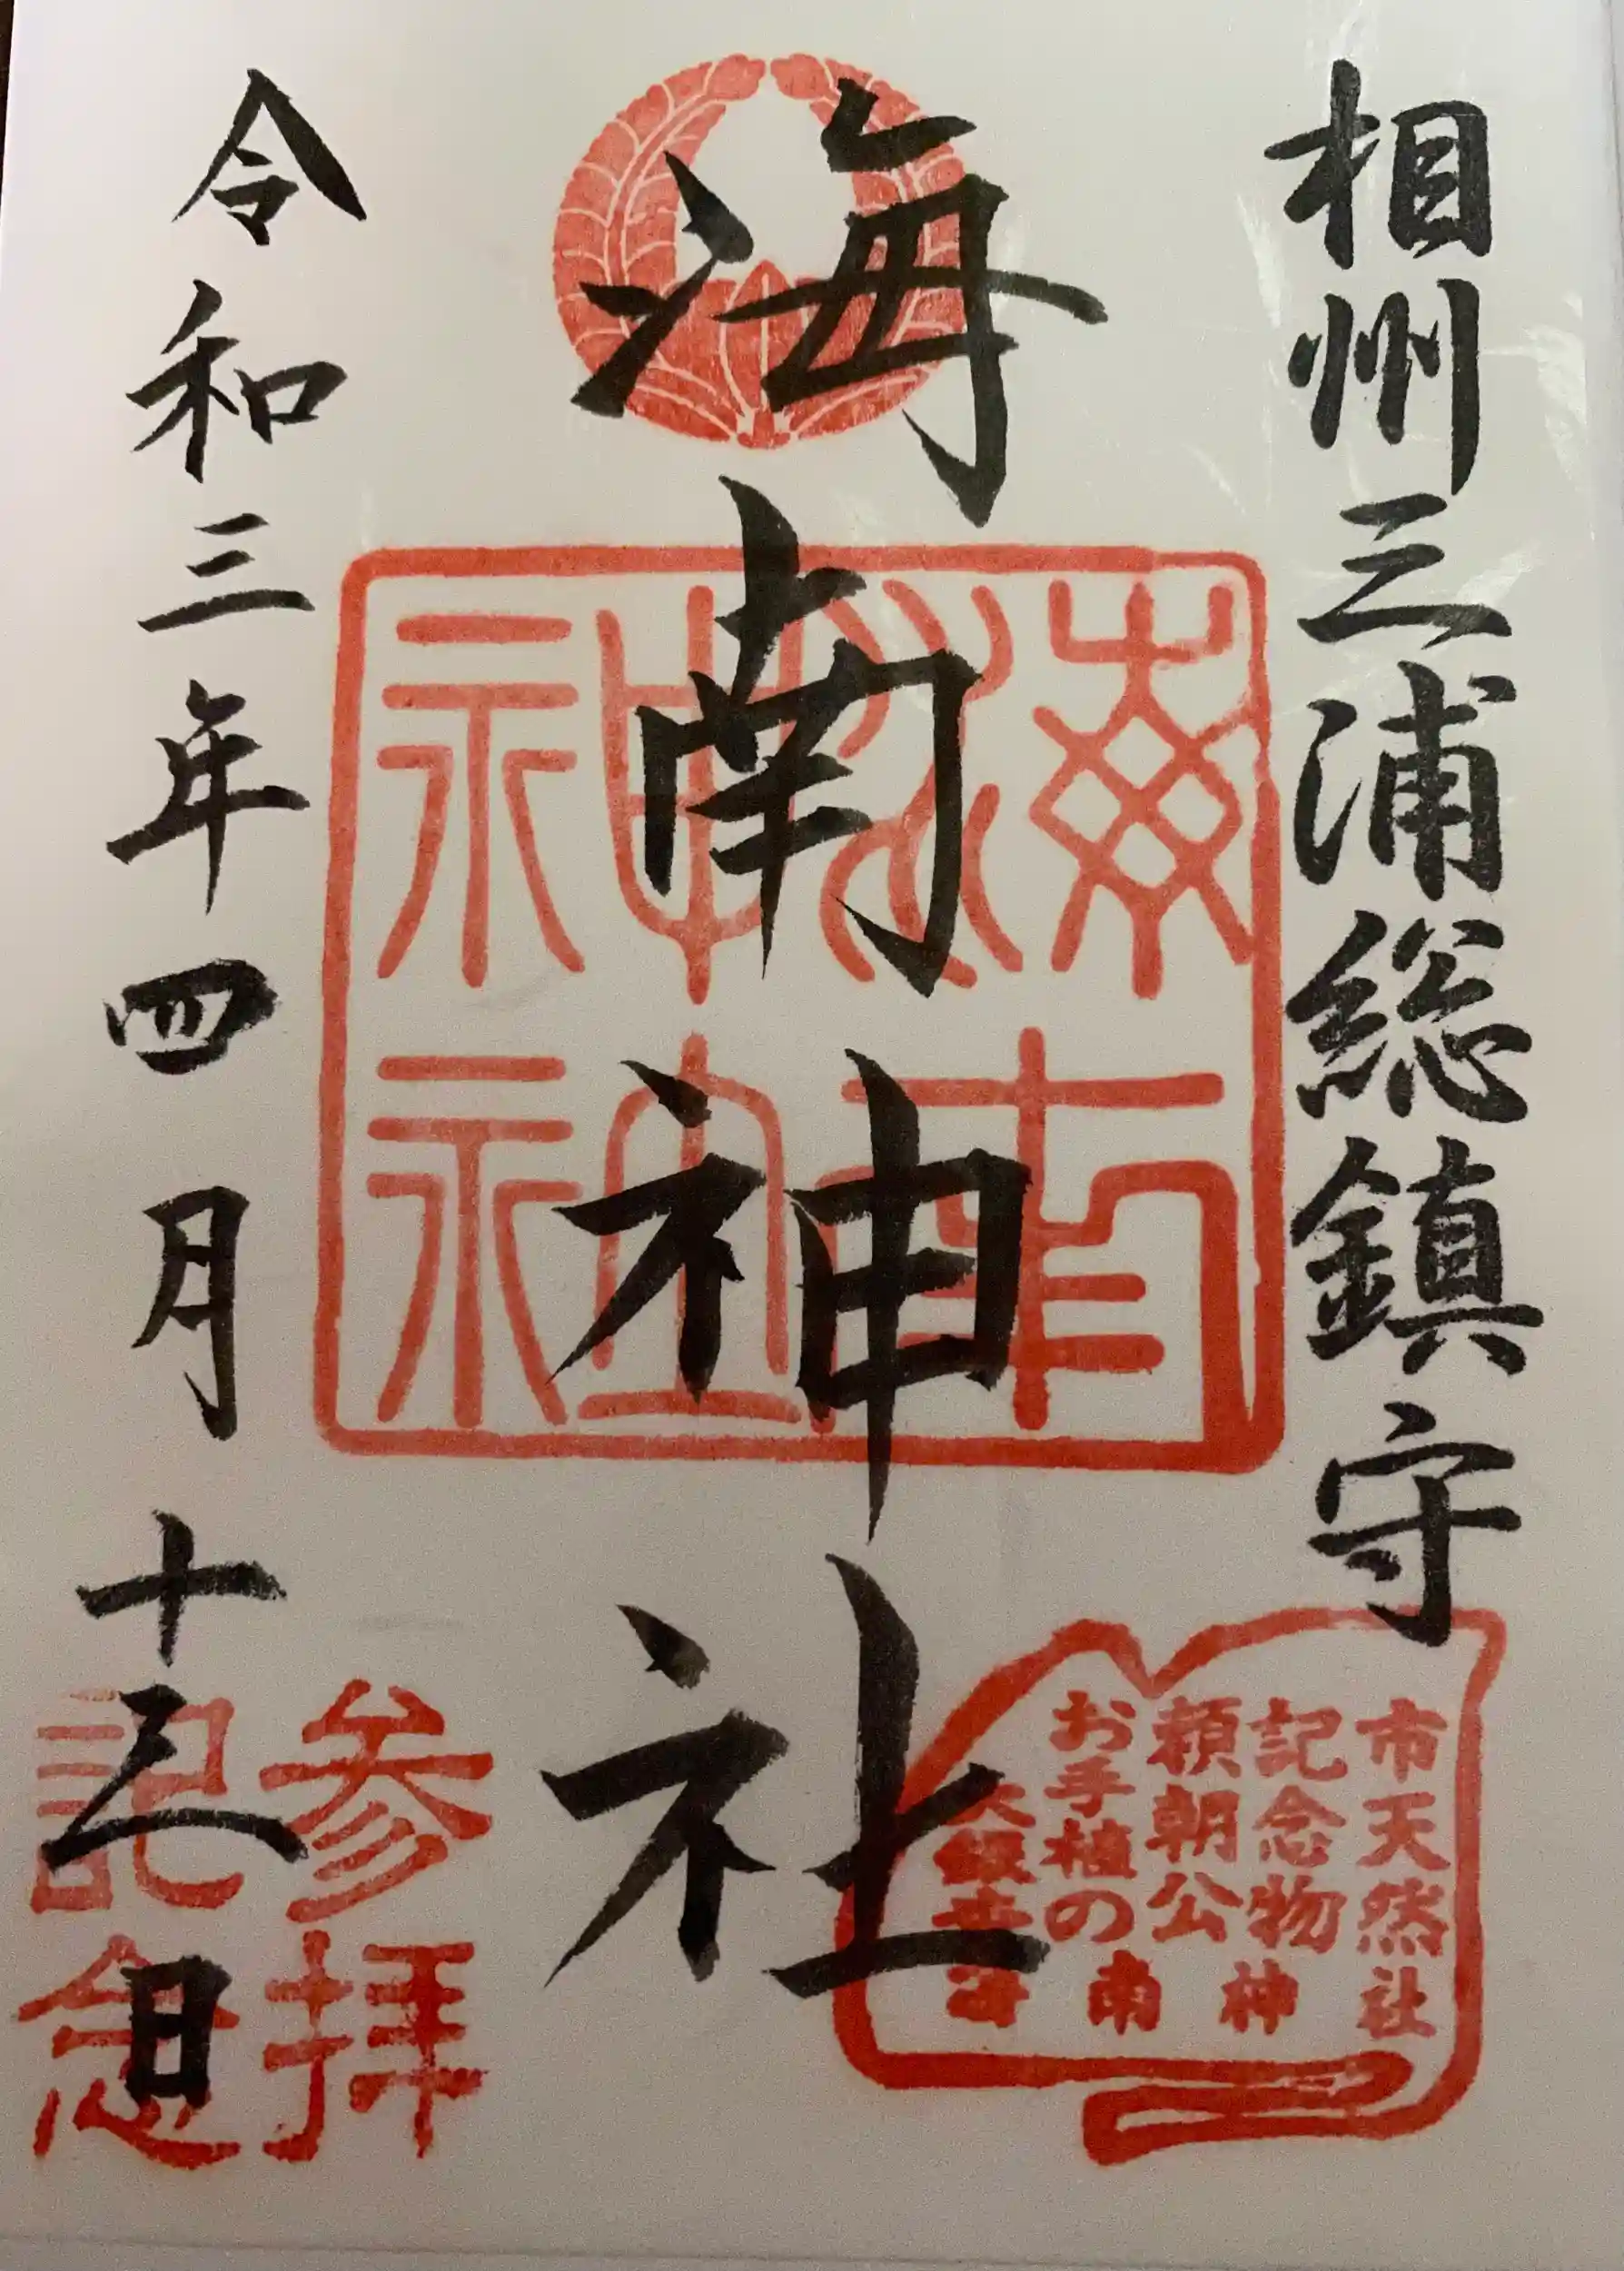 相州三浦総鎮守
海南神社
令和三年四月十三日
海南神社
市天然
記念物
頼朝公
お手植の
大銀杏
海南神社
参拝
記念